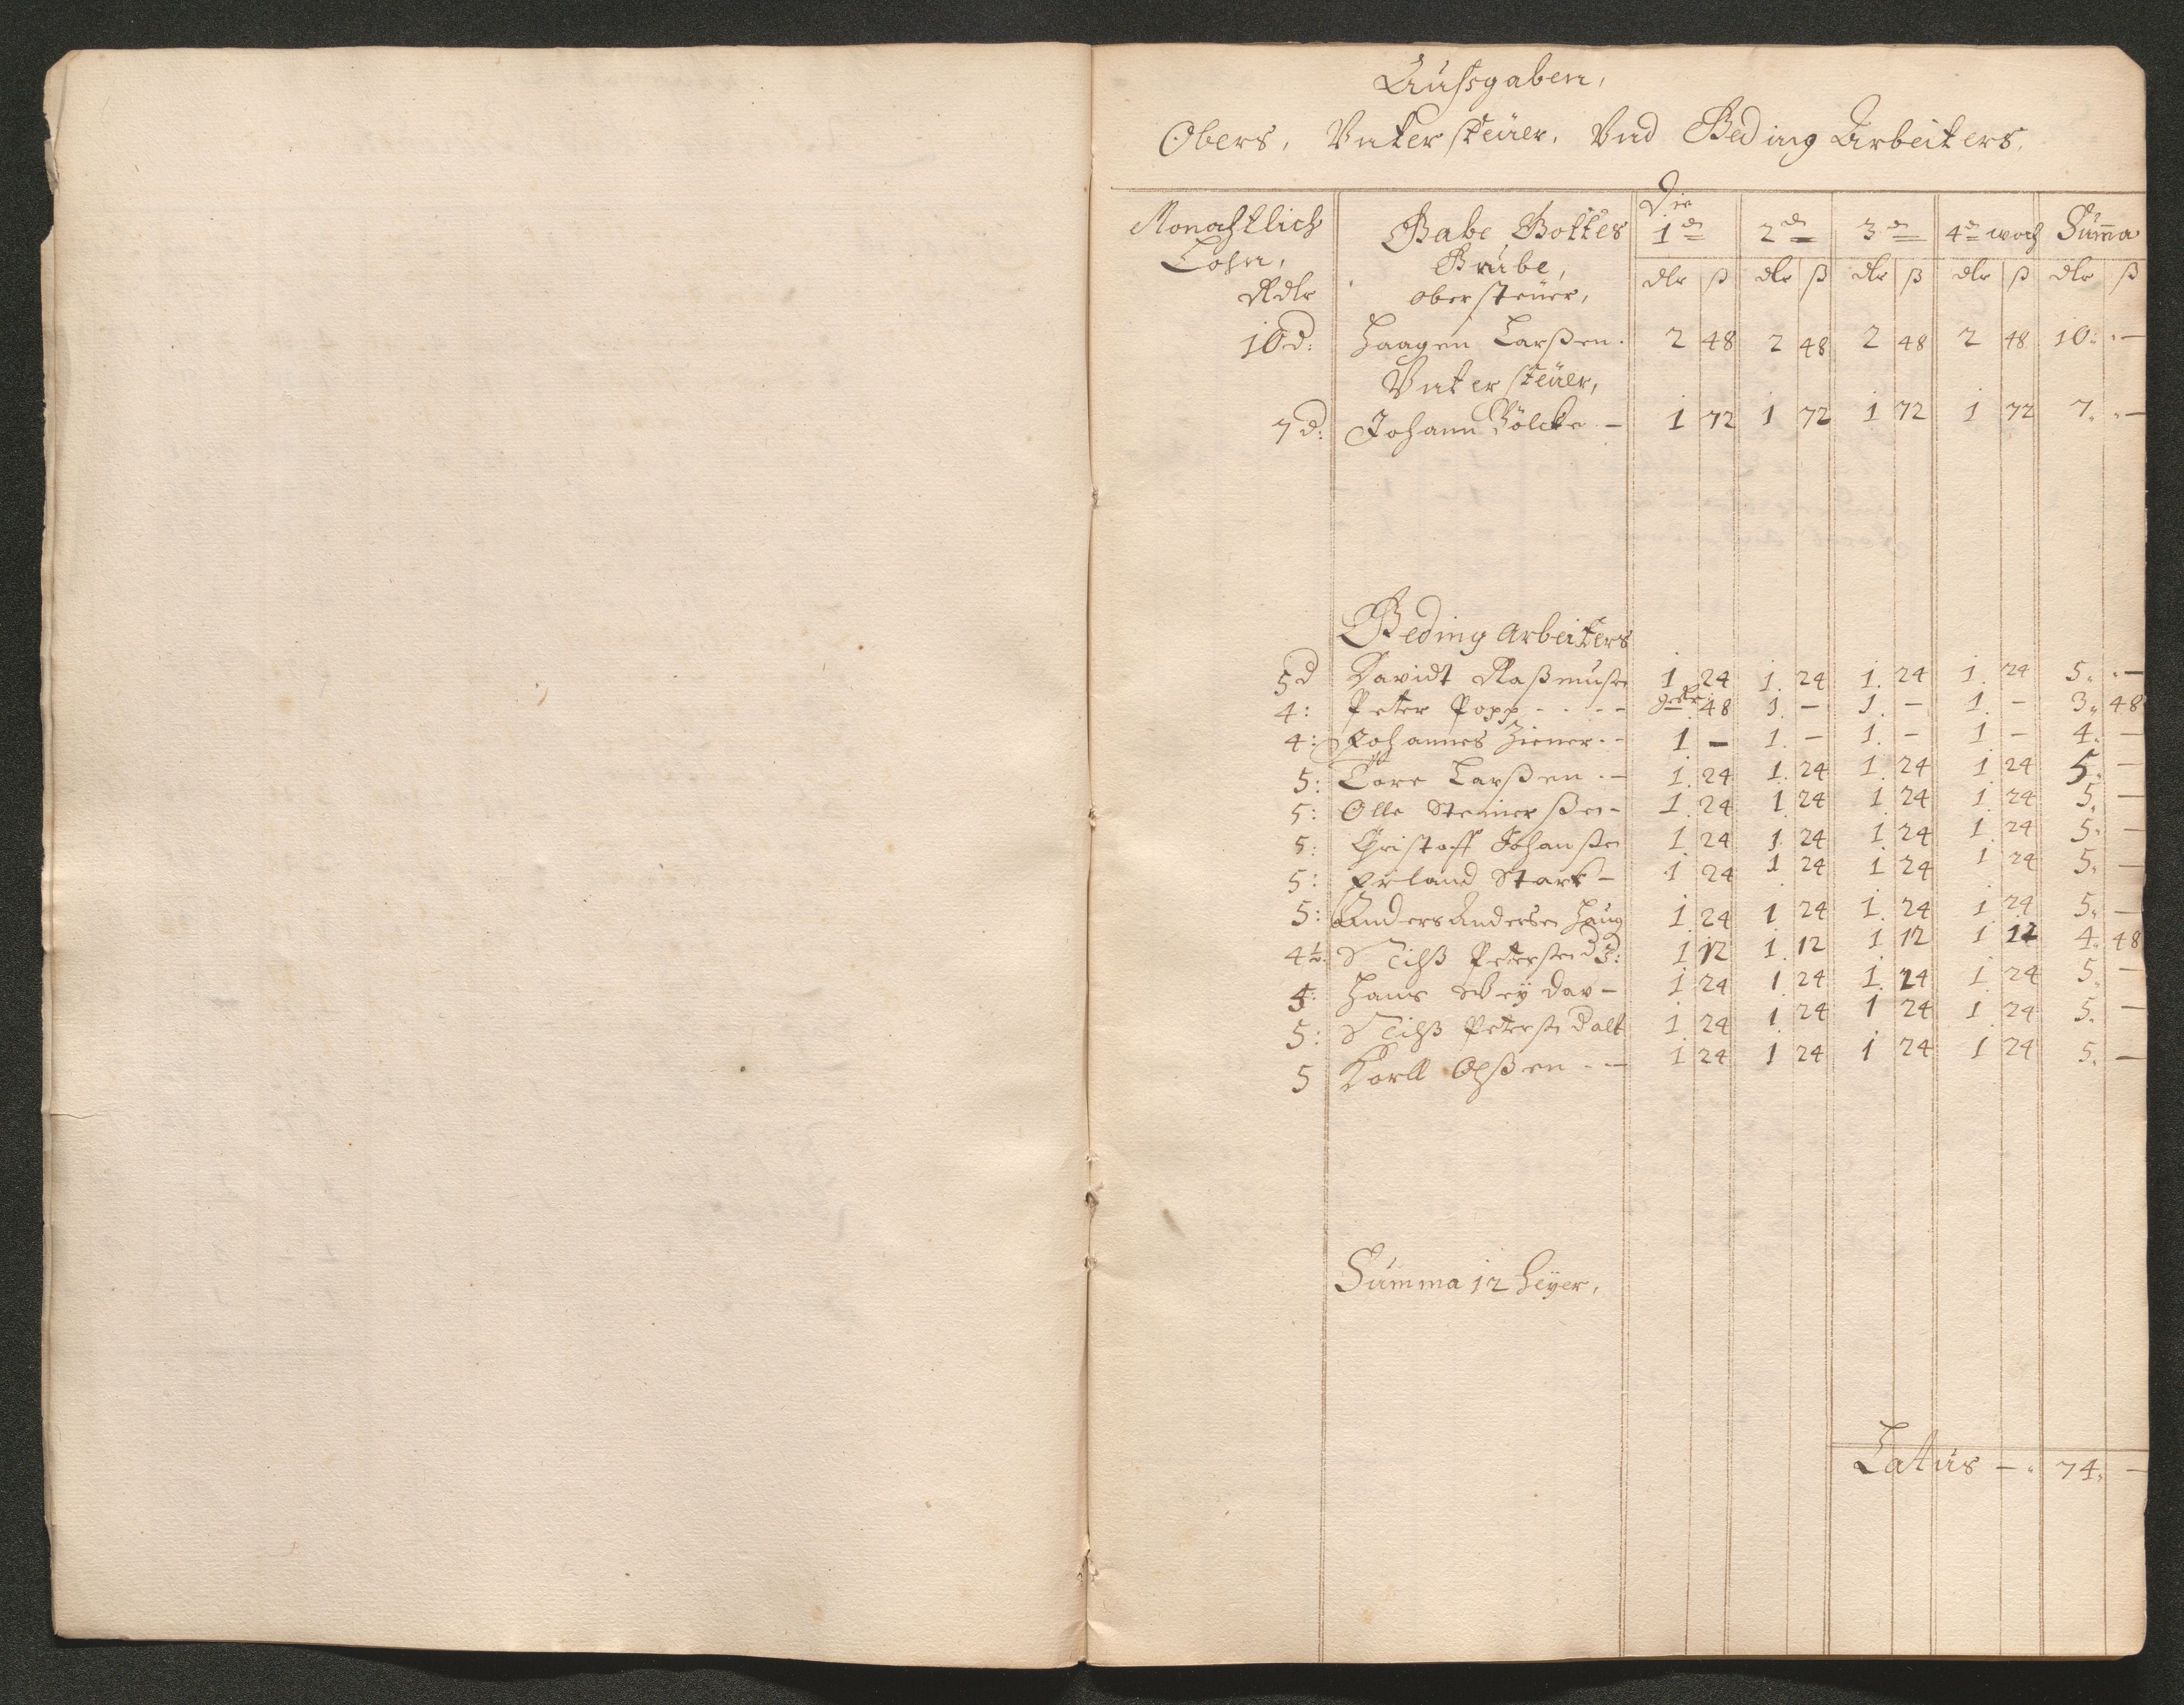 Außgaben,
Obers, Untersteüer, Und Beding Arbeiters,
Monahtlich Lohn, Rdlr
Gabe Gottes Grube, obersteüer,
Die 1te 2te 3te 4te woch Suma
dlr ß dlr ß dlr ß dlr ß dlr ß
10d: Haagen Larßen. 2 48 2 48 2 48 2 48 10: -
Untersteüer,
7d: Johann Bölcke - 1 72 1 72 1 72 1 72 7. -
Beding Arbeiters
5d Davidt Raßmuße 1 24 1. 24 1. 24 1. 24 5. -
4: Peter Popp - - - - 48 1 - 1. - 1. - 3. 48
4: Johannes Ziener - - 1 - 1. - 1. - 1 - 4. -
5: Tore Larßen - - 1. 24 1. 24 1. 24 1 24 5. -
5: Olle Steinerßen - 1. 24 1 24 1 24 1. 24 5. -
5: Christoff Johanße 1 24 1 24 1. 24 1. 24 5. -
5: Erland Stark - 1 24 1 24 1 24 1 24 5. -
5: Anders Anderße Haug 1. 24 1 24 1. 24 1. 24 5. -
4½. Nilß Peterße 1 12 1. 12 1 12 1 12 4. 48
5: Hans - 1 24 1 24 1. 24 1. 24 5. -
5: Nilß Peterße 1 24 1 24 1 24 1. 24 5. -
5 Olßen - - 1 24 1 24 1 24 1 24 5. -
Summa 12 heyer,
Latus - . 74. -